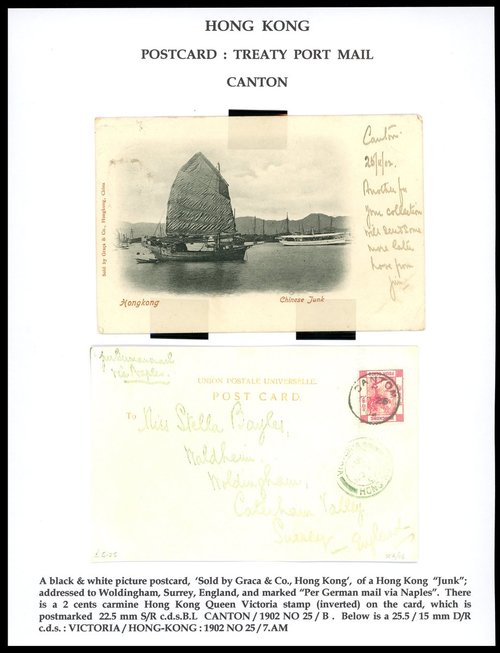 HONG KONG
POSTCARD : TREATY PORT MAIL
CANTON
Canton
Another for
your collection
will send some
more later
Sold by Graça & Co., Hongkong, China
Hongkong
Chinese Junk
via Naples
UNION POSTALE UNIVERSELLE.
POST CARD.
HONG KONG
CANTON
To Miss Stella Bayley,
Woldingham,
Caterham Valley
Surrey
England
HONG
A black & white picture postcard, ‘Sold by Graca & Co., Hong Kong’, of a Hong Kong “Junk”;
addressed to Woldingham, Surrey, England, and marked “Per German mail via Naples”. There
is a 2 cents carmine Hong Kong Queen Victoria stamp (inverted) on the card, which is
postmarked 22.5 mm S/R c.d.s.B.L CANTON / 1902 NO 25 / B . Below is a 25.5 / 15 mm D/R
c.d.s. : VICTORIA / HONG-KONG : 1902 NO 25 / 7.AM